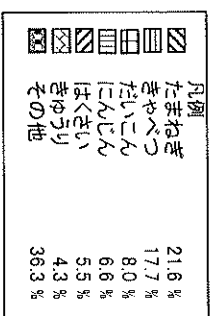 凡例
たまねぎ 21.6 %
きゃべつ 17.7 %
だいこん 8.0 %
にんじん 6.6 %
はくさい 5.5 %
きゅうり 4.3 %
その他 36.3 %